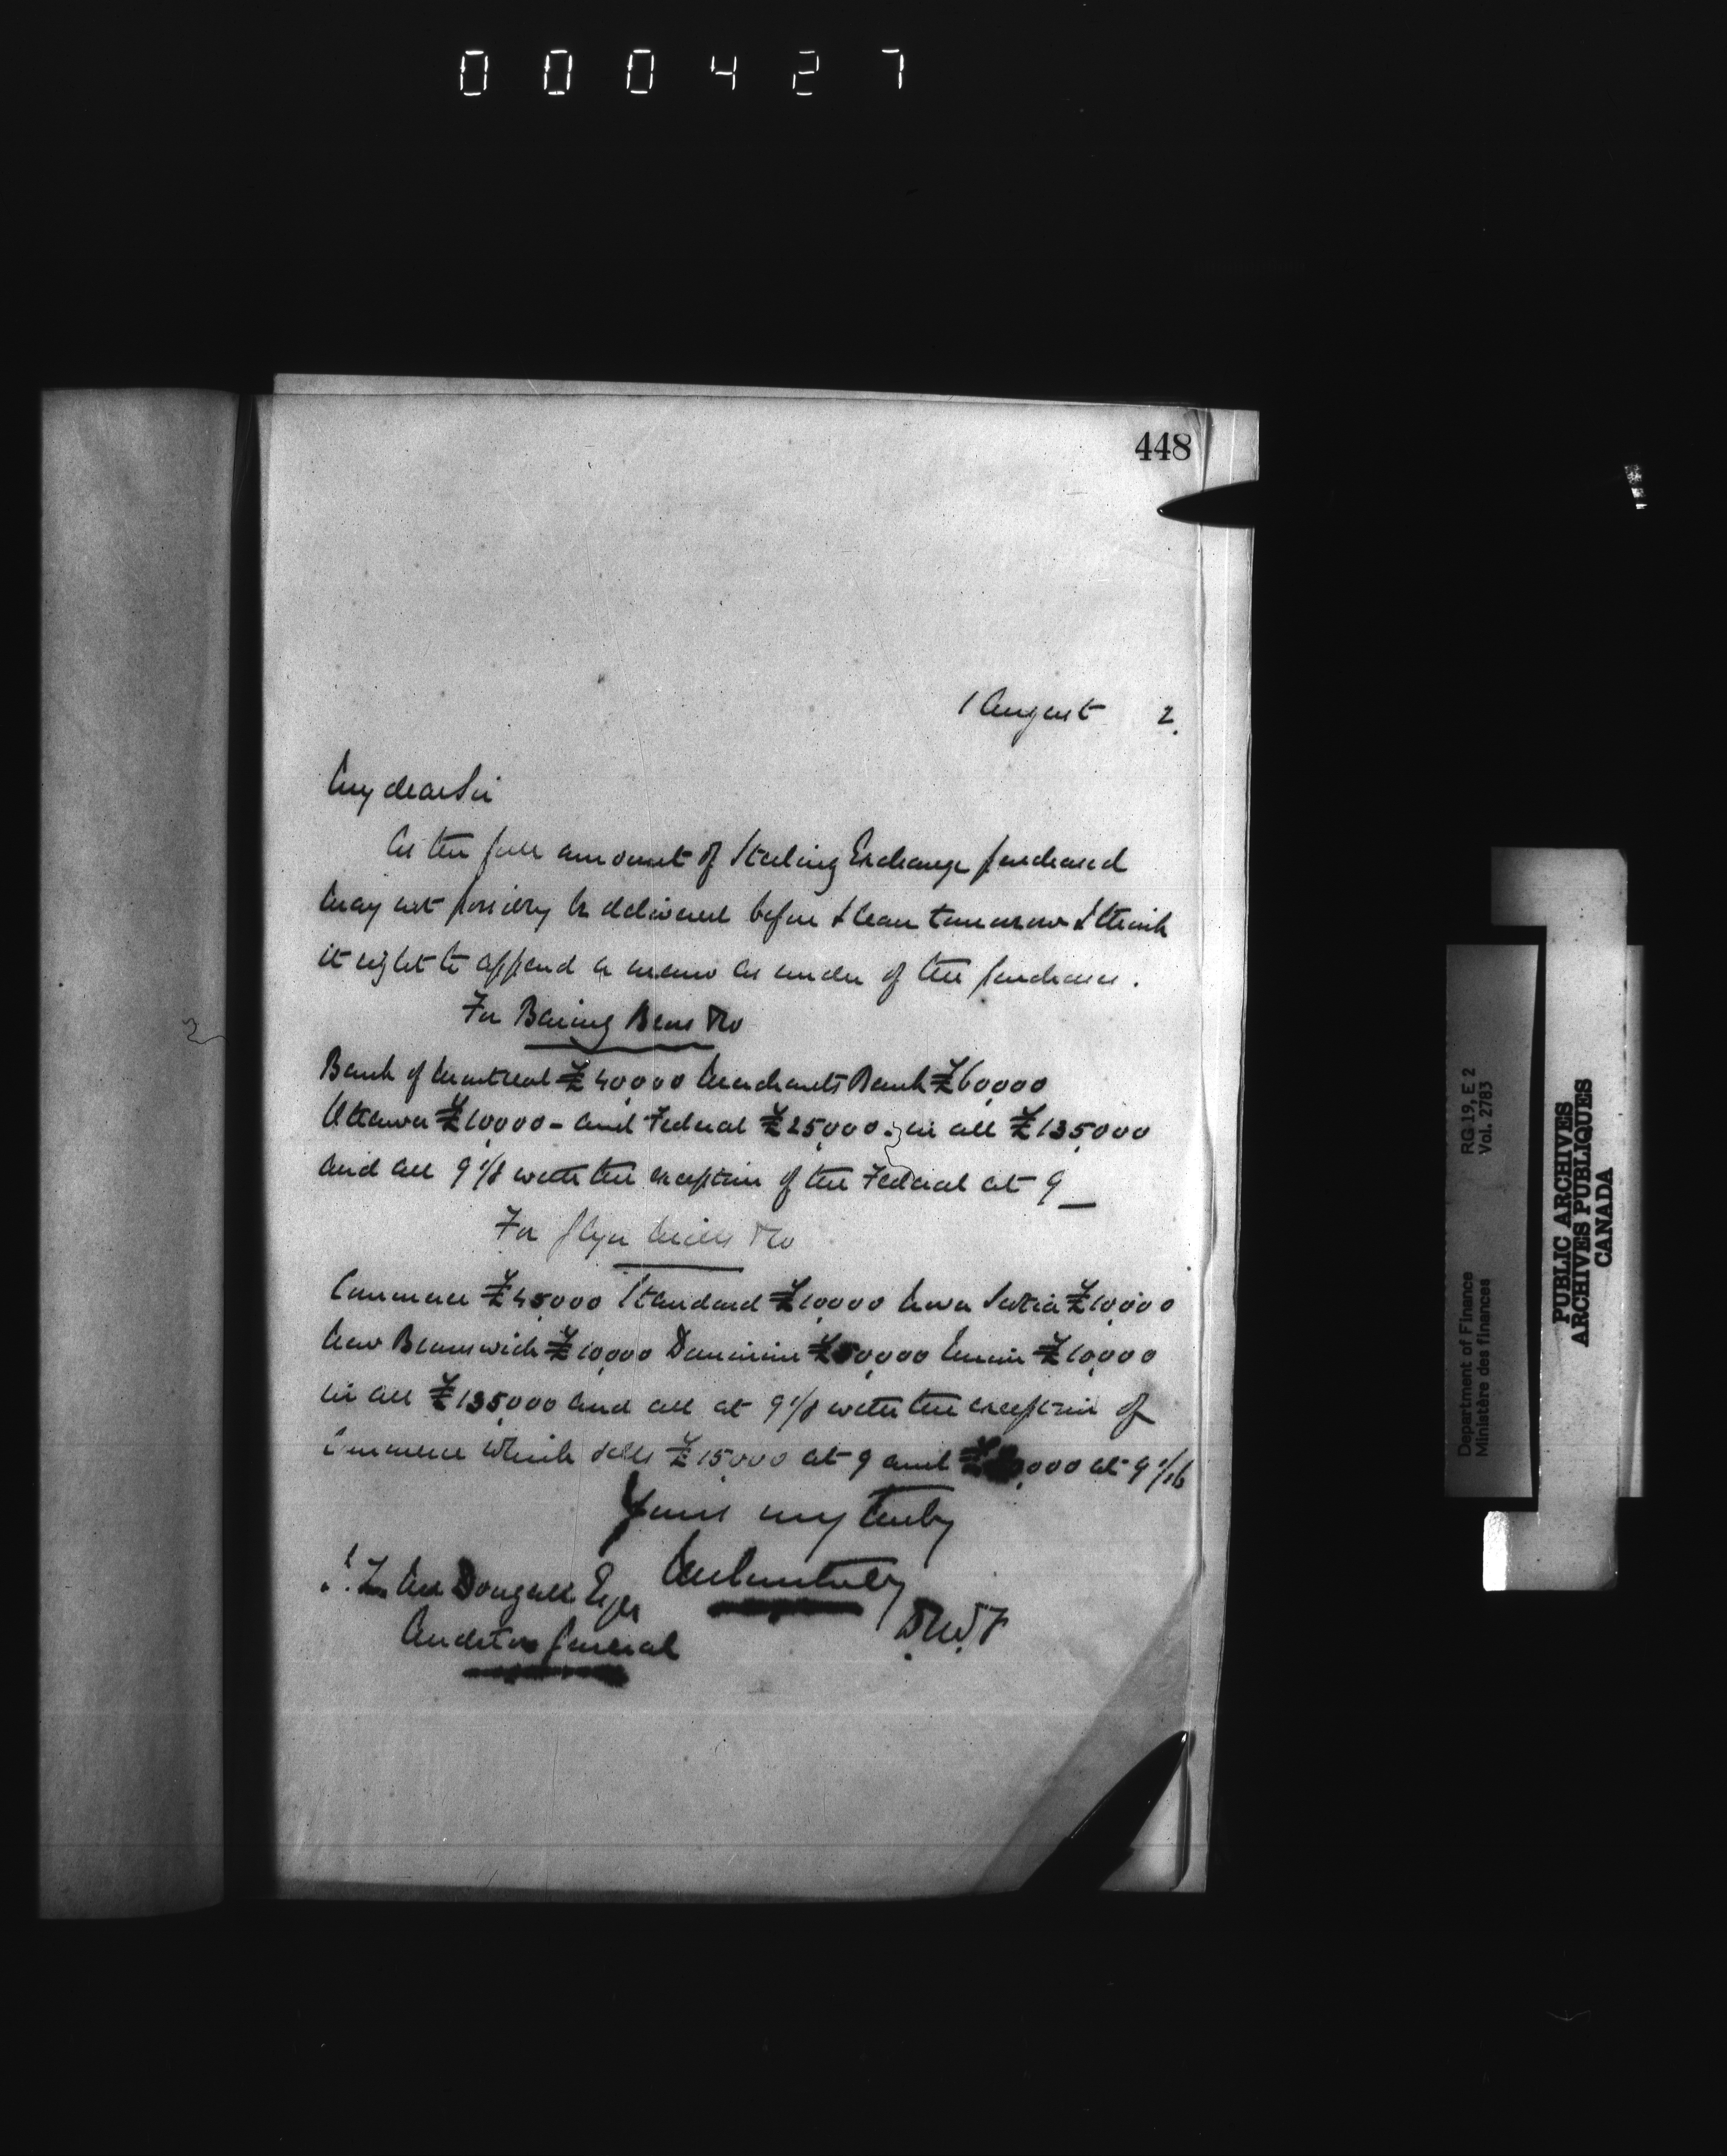 000427
448
1 August 2.
My dear Sir
As the full amount of Sterling Exchange purchased
may not possibly be delivered before I leave tomorrow I think
it right to append a memo as under of the purchases.
For Baring Bros & Co
Bank of Montreal £40,000 Merchants Bank £60,000
Ottawa £10,000 - and Federal £25,000 - in all £135,000
and all 9 1/8 with the exception of the Federal at 9
For Glyn Mills & Co
Commerce £45,000 Standard £10,000 Nova Scotia £10,000
New Brunswick £10,000 Dominion £50,000 Union £10,000
in all £135,000 and all at 9 1/8 with the exception of
Commerce which sells £15,000 at 9 and ,000 at 9 1/16
Yours very truly
J. L. McDougall Esqr
D.M.F
Auditor General
Department of Finance RG 19, E 2
Ministère des finances Vol. 2783
PUBLIC ARCHIVES
ARCHIVES PUBLIQUES
CANADA